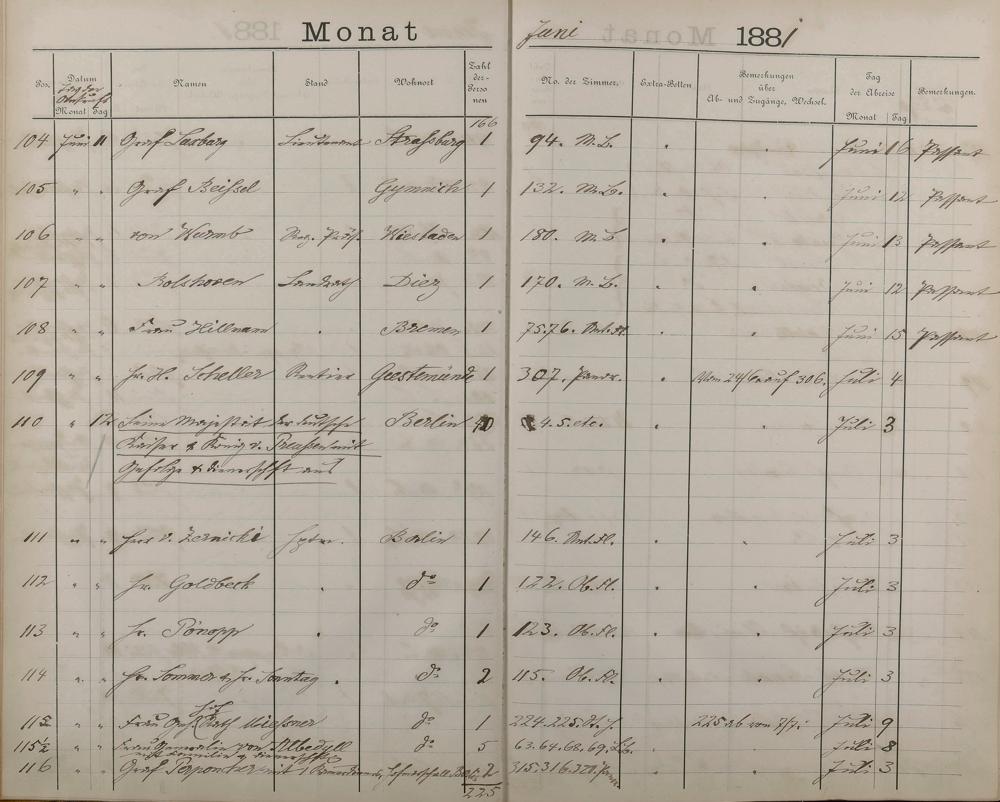 Monat Juni 1881
Pos. Datum Namen Stand Wohnort Zahl der Personen No. der Zimmer. Extra-Betten Bemerkungen über Ab- und Zugänge, Wechsel. Tag der Abreise Bemerkungen.
Tag der Ankunft
Monat Tag Monat Tag
166
104 Juni 11 Graf Strafsburg 1 94. M.L. " " Juni 16 Passant
105 " " Graf Beifsel Gymnich 1 132. M.L. " " Juni 12 Passant
106 " " von Wurmb Reg. Präs. Wiesbaden 1 180. M.L " " Juni 13 Passant
107 " " Rolshoven Landrath Diez 1 170. M.L. " " Juni 12 Passant
108 " " Frau Hillmann " Bremen 1 75.76. Unt.Fl. " " Juni 15 Passant
109 " " Hr. H. Scheller Rentier Geestemünde 1 307. " Vom 24/6 auf 306. Juli 4
110 " 12 Seine Majestät der deutsche Berlin 4.5.etc. Juli 3
Kaiser & König v. Preußen mit
Gefolge & Dienerschaft aus
111 " " Herr v. Zernicki Berlin 1 146. Unt.Fl. " " Juli 3
112 " " Hr. Goldbeck " do 1 122. Ob.Fl. " " Juli 3
113 " " Hr. Pönopp " do 1 123. Ob.Fl. " " Juli 3
114 " " Hr. Sommer & Hr. Sonntag " do 2 115. Ob.Fl. " " Juli 3
115 " " Frau Rath Miessner do 1 224.225. " 225 ab von 7/7. Juli 9
115½ " " Frau Generalin von Albedyll do 5 63.64.68.69. " " Juli 8
mit Familie & Dienerschaft
116 " " Graf Perponcher mit 1 Hofmarschall 2 315.316.320. " " Juli 3
225